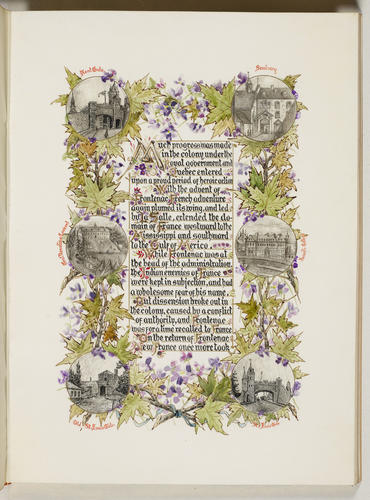 Kent Gate
Seminary
Much progress was made
in the colony under the
royal government and
Quebec entered
upon a proud period of heroic action
With the advent of
Frontenac French adventure
again plumed its wing, and led
by La Salle, extended the do-
main of France westward to the
Mississippi and southward
to the Gulf of Mexico.
While Frontenac was at
the head of the administration,
the Indian enemies of France
were kept in subjection, and had
a wholesome fear of his name.
But dissension broke out in
the colony, caused by a conflict
of authority, and Frontenac
was for a time recalled to France
On the return of Frontenac
New France once more took
Old St. Louis Gate